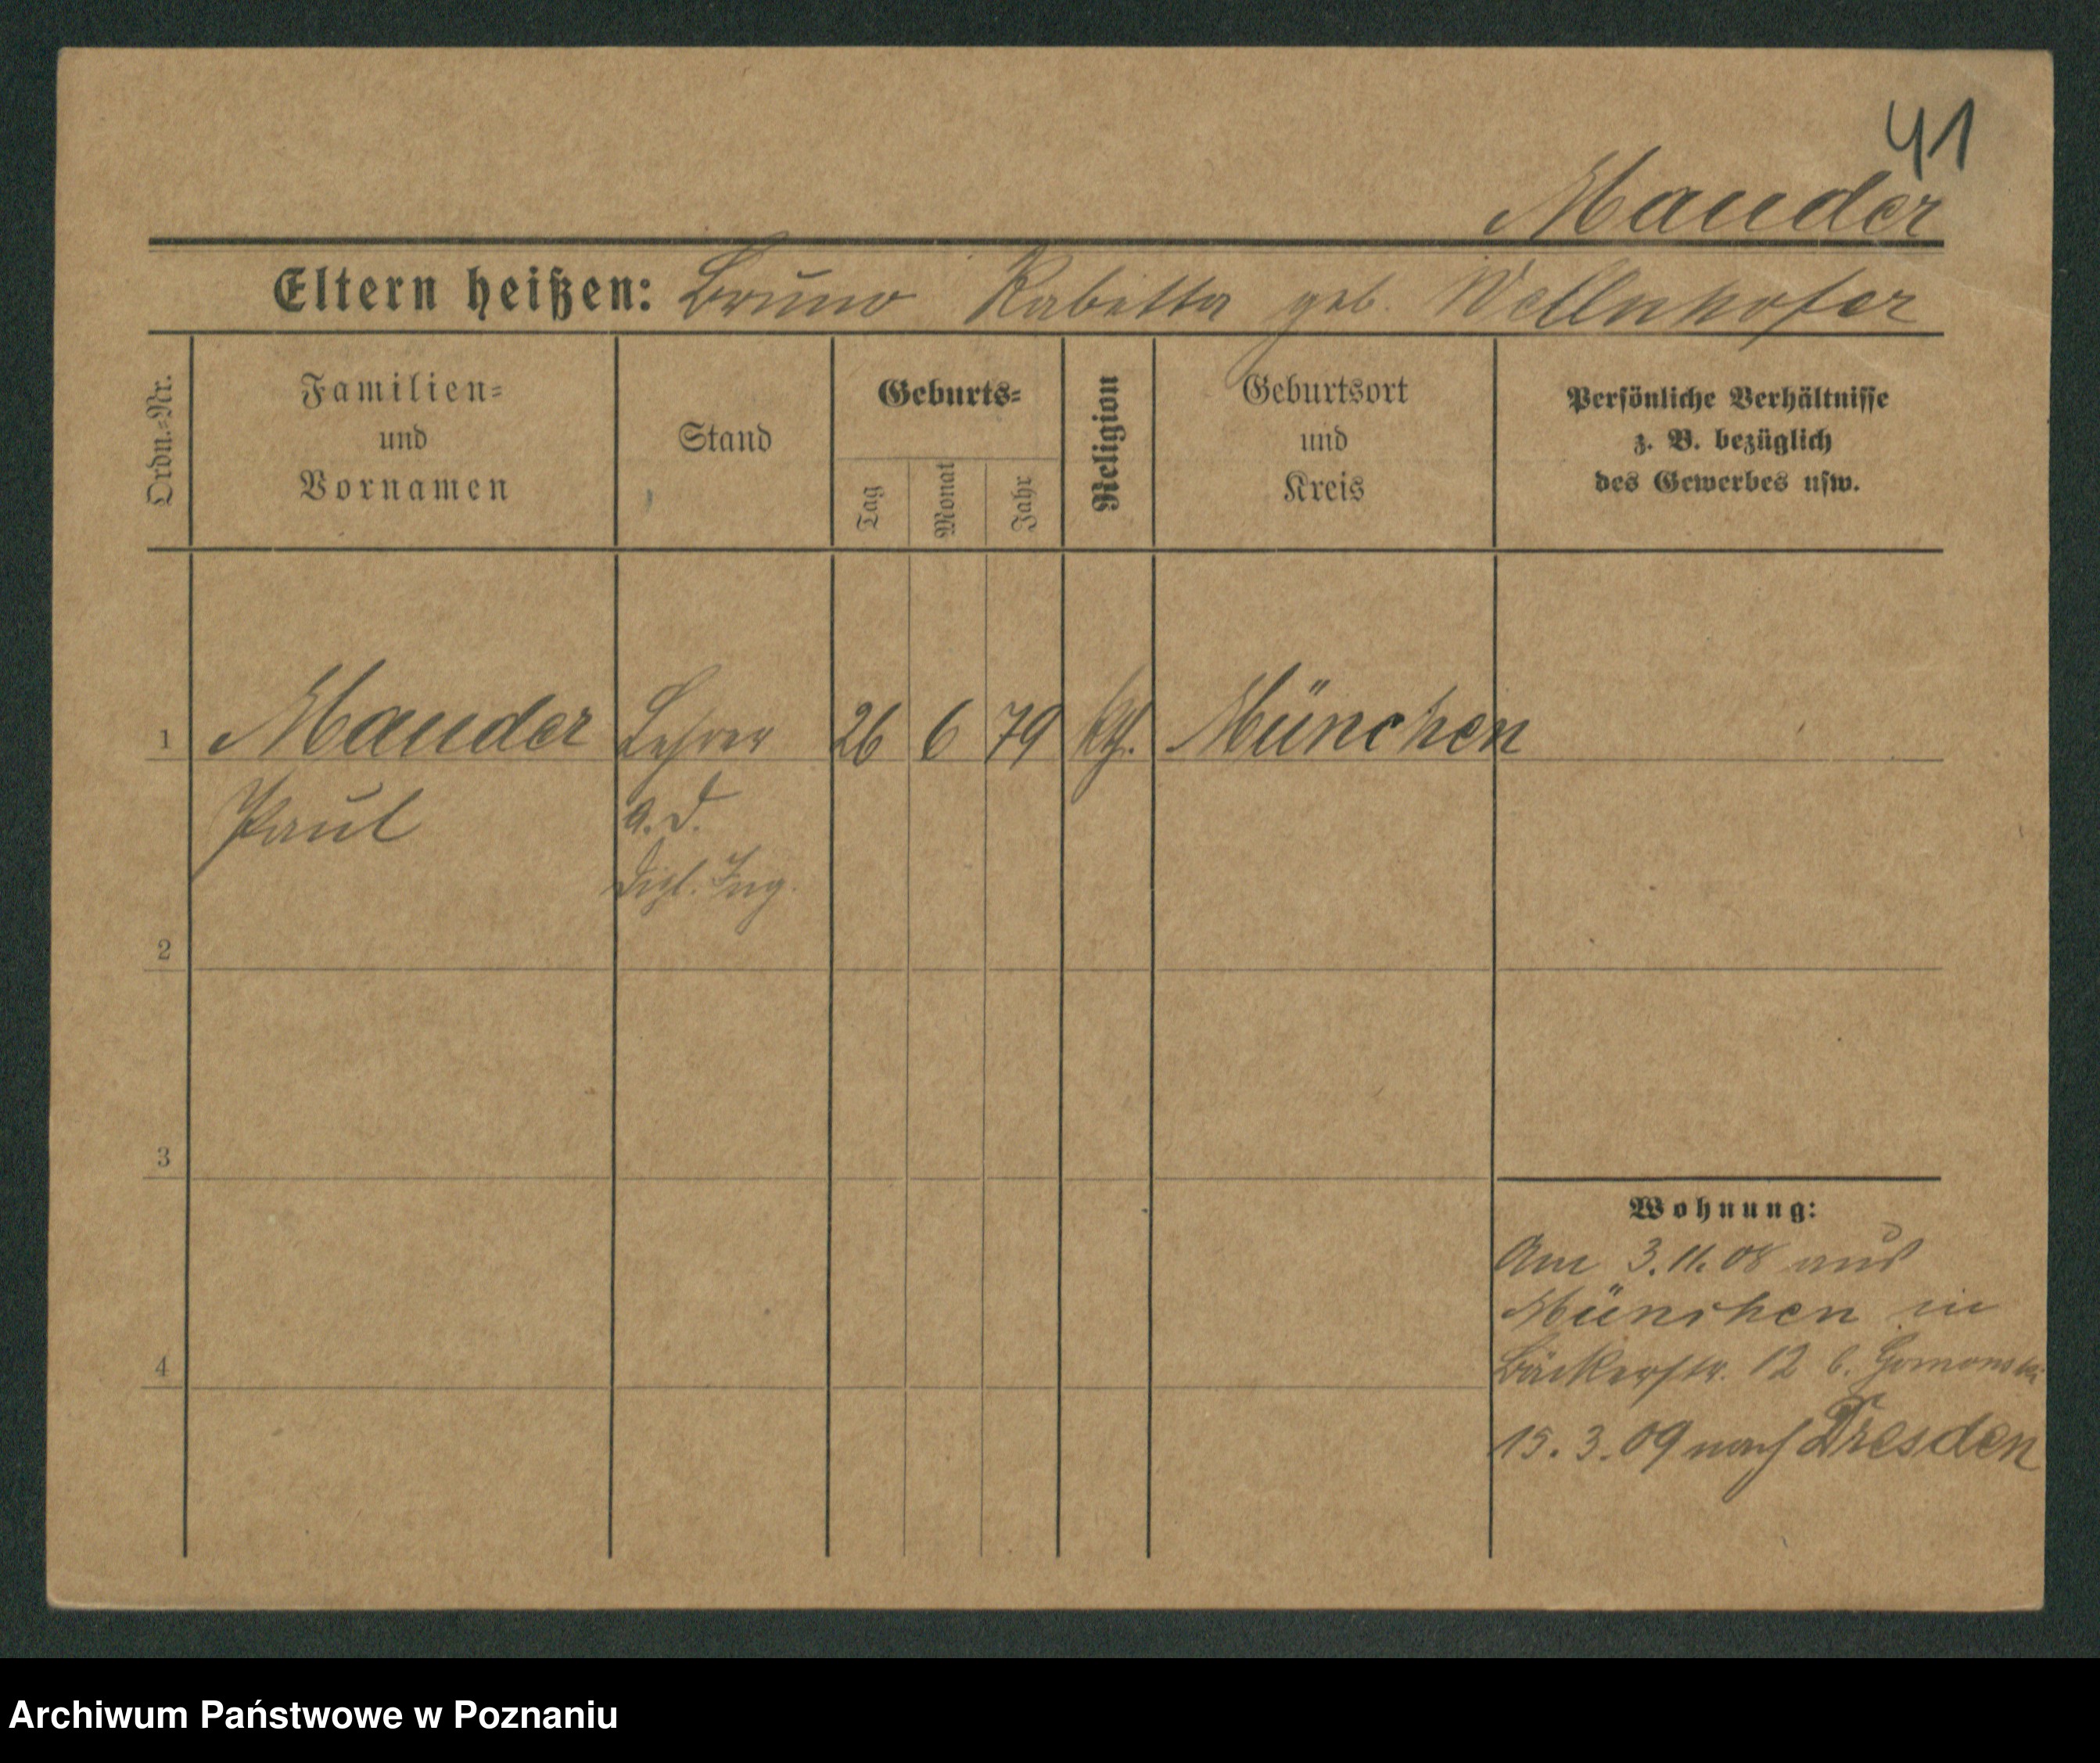 41
Mauder
Eltern heißen: Bruno Babetta geb. Wellnhofer
Ordn.-Nr.
Familien-
und
Vornamen
Stand
Geburts-
Tag
Monat
Jahr
Religion
Geburtsort
und
Kreis
Persönliche Verhältnisse
z. B. bezüglich
des Gewerbes usw.
1 Mauder Lehrer 26 6 79 kth. München
Paul a. d.
Dipl. Ing.
2
3
Wohnung:
Am 3.11.08 aus
München in
Bäckerstr. 12 b.
4
15. 3. 09 nach Dresden
Archiwum Państwowe w Poznaniu